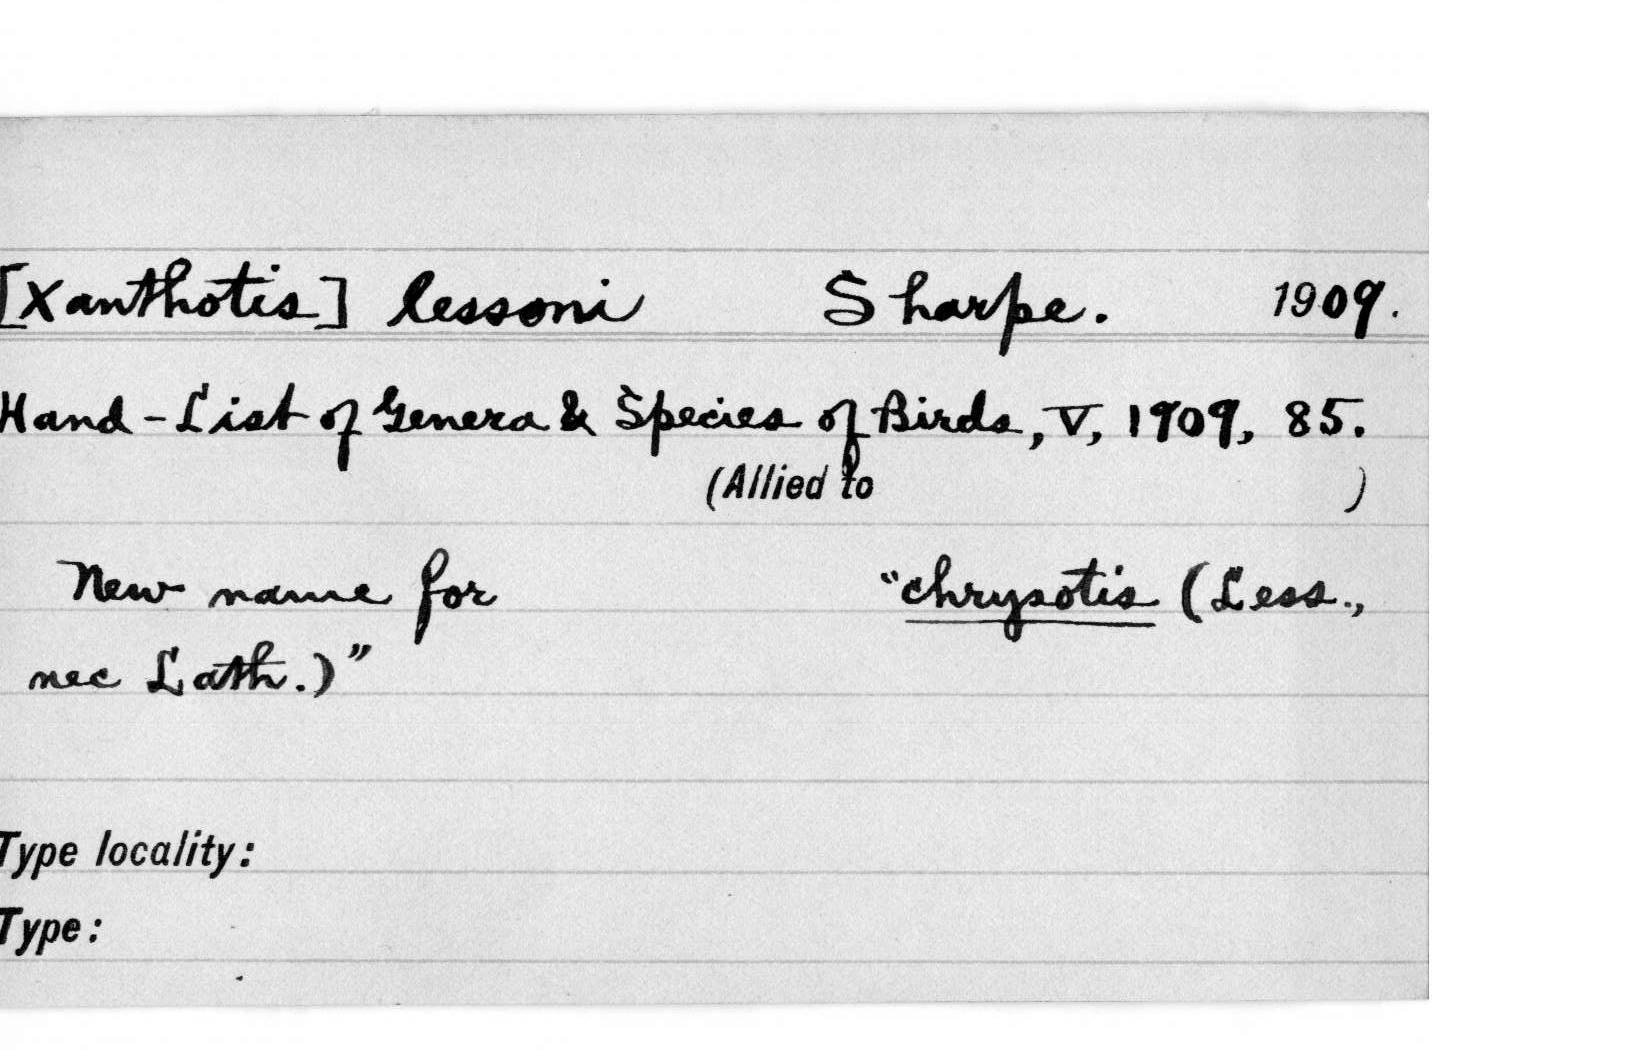 [Xanthotis] lessoni Sharpe. 1909.
Hand-List of Genera & Species of Birds, V, 1909, 85.
(Allied to )
New name for "chrysotis (Less.,
nec Lath.)"
Type locality:
Type: